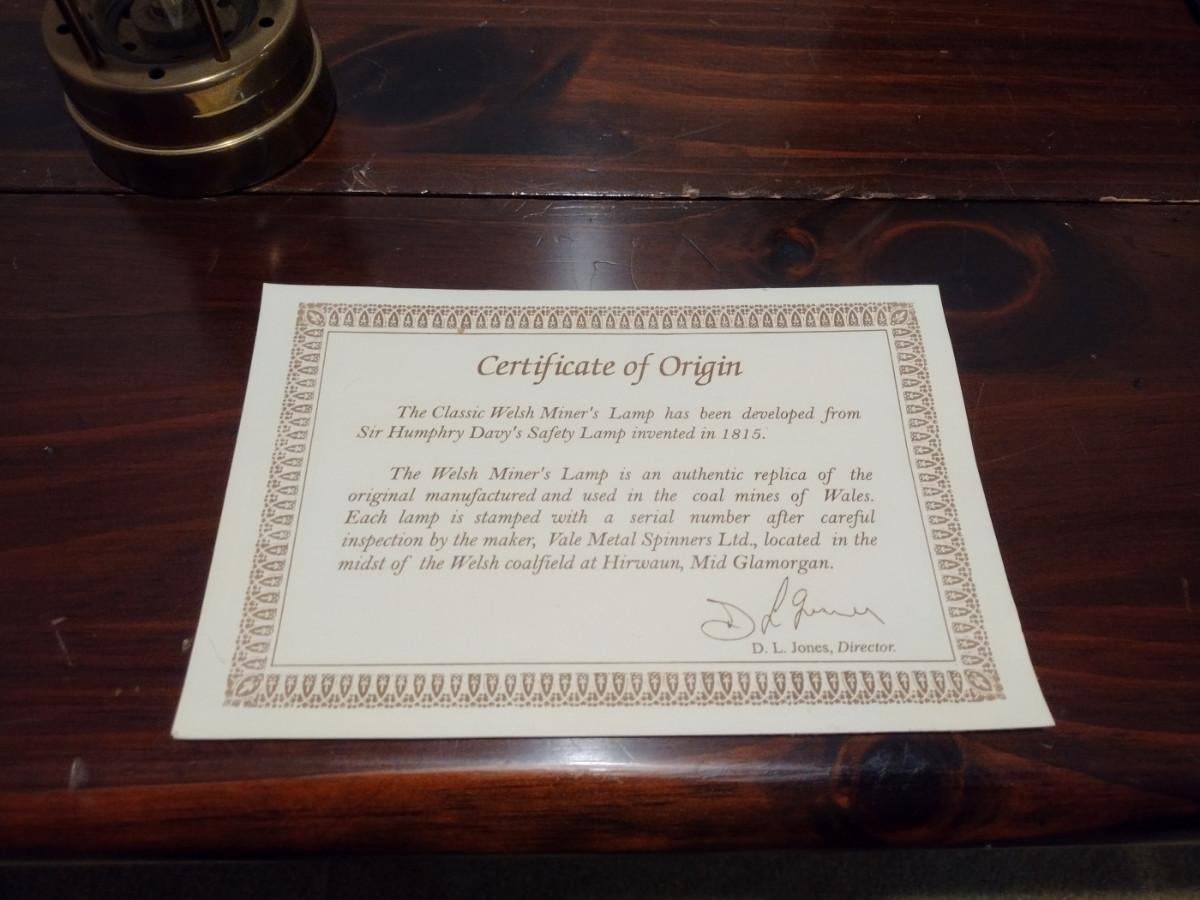 Certificate of Origin
The Classic Welsh Miner's Lamp has been developed from
Sir Humphry Davy's Safety Lamp invented in 1815.
The Welsh Miner's Lamp is an authentic replica of the
original manufactured and used in the coal mines of Wales.
Each lamp is stamped with a serial number after careful
inspection by the maker, Vale Metal Spinners Ltd., located in the
midst of the Welsh coalfield at Hirwaun, Mid Glamorgan.
D L Jones
D. L. Jones, Director.